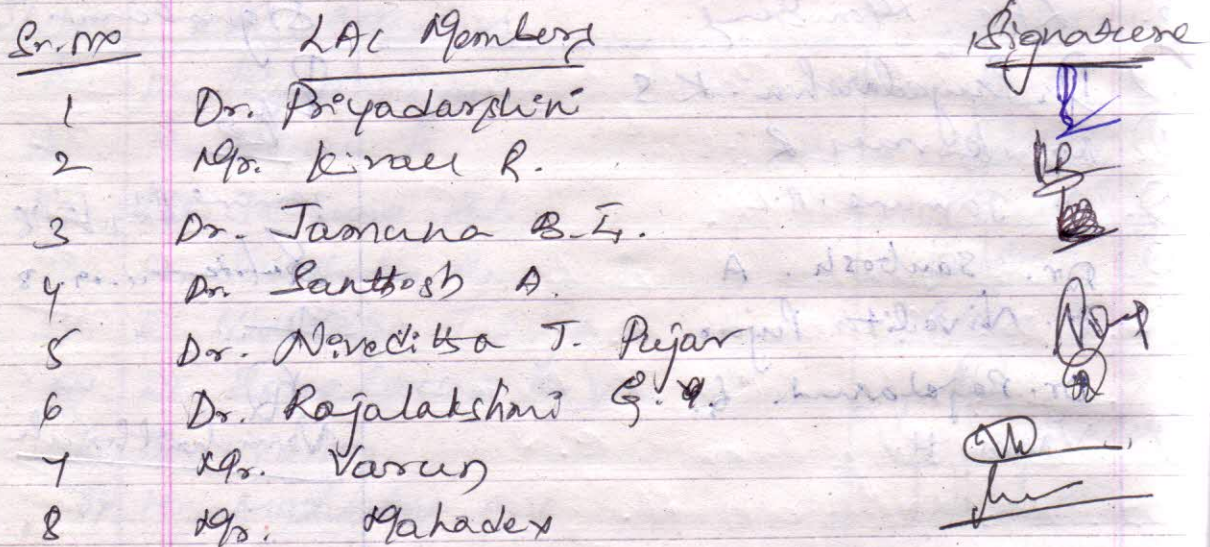 Sr. No LAC Members Signature
1 Dr. Priyadarshini
2 Mr. Kiran R.
3 Dr. Jamuna B.L.
4 Dr. Santhosh A.
5 Dr. Niveditha J. Pujar
6 Dr. Rajalakshmi G.
7 Mr. Varun
8 Mr. Mahadev